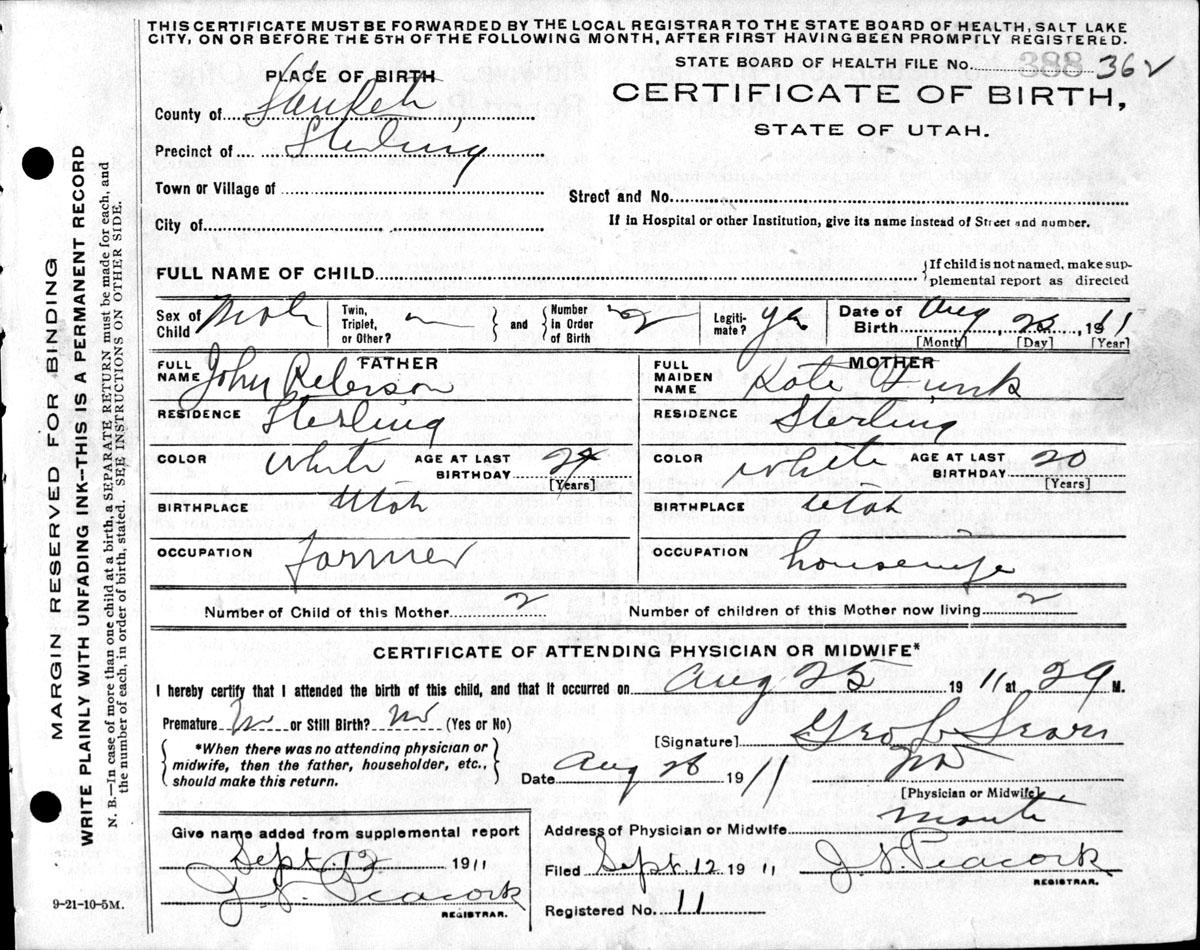 THIS CERTIFICATE MUST BE FORWARDED BY THE LOCAL REGISTRAR TO THE STATE BOARD OF HEALTH, SALT LAKE
CITY, ON OR BEFORE THE 5TH OF THE FOLLOWING MONTH, AFTER FIRST HAVING BEEN PROMPTLY REGISTERED.
STATE BOARD OF HEALTH FILE No. 388 362
PLACE OF BIRTH
CERTIFICATE OF BIRTH,
STATE OF UTAH.
County of Sanpete
Precinct of Sterling
Town or Village of
Street and No.
City of
If in Hospital or other Institution, give its name instead of Street and number.
FULL NAME OF CHILD
If child is not named, make sup-
plemental report as directed
Sex of Child Male Twin, Triplet, or Other? and Number in Order of Birth 2 Legiti-mate? yes Date of Birth Aug 25, 1911
[Month] [Day] [Year]
FATHER
MOTHER
FULL NAME John Peterson FULL MAIDEN NAME Kate Funk
RESIDENCE Sterling RESIDENCE Sterling
COLOR White AGE AT LAST BIRTHDAY [Years] COLOR White AGE AT LAST BIRTHDAY 20 [Years]
BIRTHPLACE Utah BIRTHPLACE Utah
OCCUPATION Farmer OCCUPATION housewife
Number of Child of this Mother 2 Number of children of this Mother now living 2
CERTIFICATE OF ATTENDING PHYSICIAN OR MIDWIFE*
I hereby certify that I attended the birth of this child, and that it occurred on Aug 25 1911 at M.
Premature No or Still Birth? No (Yes or No)
*When there was no attending physician or
midwife, then the father, householder, etc.,
should make this return.
[Signature] Geo L Sears
Date Aug 28 1911 MD
[Physician or Midwife]
Give name added from supplemental report
Sept. 12 1911
J. N. Peacock
REGISTRAR.
Address of Physician or Midwife Manti
Filed Sept. 12 1911 J. N. Peacock
REGISTRAR.
Registered No. 11
9-21-10-5M.
MARGIN RESERVED FOR BINDING
WRITE PLAINLY WITH UNFADING INK—THIS IS A PERMANENT RECORD
N. B.—In case of more than one child at a birth, a SEPARATE RETURN must be made for each, and
the number of each, in order of birth, stated. SEE INSTRUCTIONS ON OTHER SIDE.